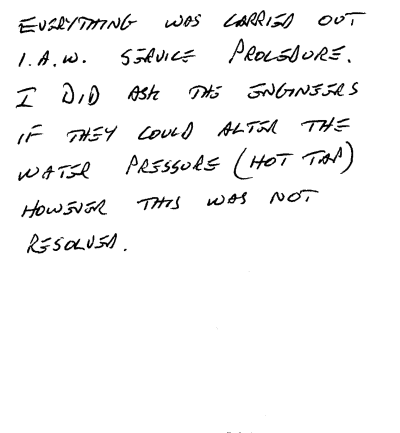 EVERYTHING WAS CARRIED OUT
I.A.W. SERVICE PROCEDURE.
I DID ASK THE ENGINEERS
IF THEY COULD ALTER THE
WATER PRESSURE (HOT TAP)
HOWEVER THIS WAS NOT
RESOLVED.